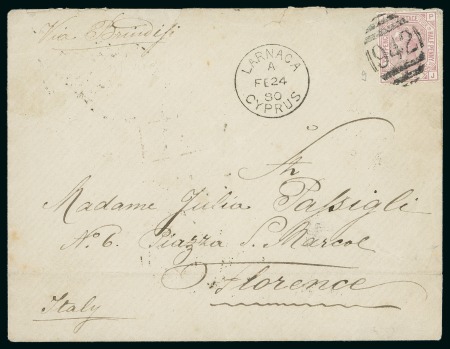 Via Brindisi
942
LARNACA
A
FE 24
80
CYPRUS
Madame Julia Passigli
N. 6. Piazza S. Marco
Florence
Italy